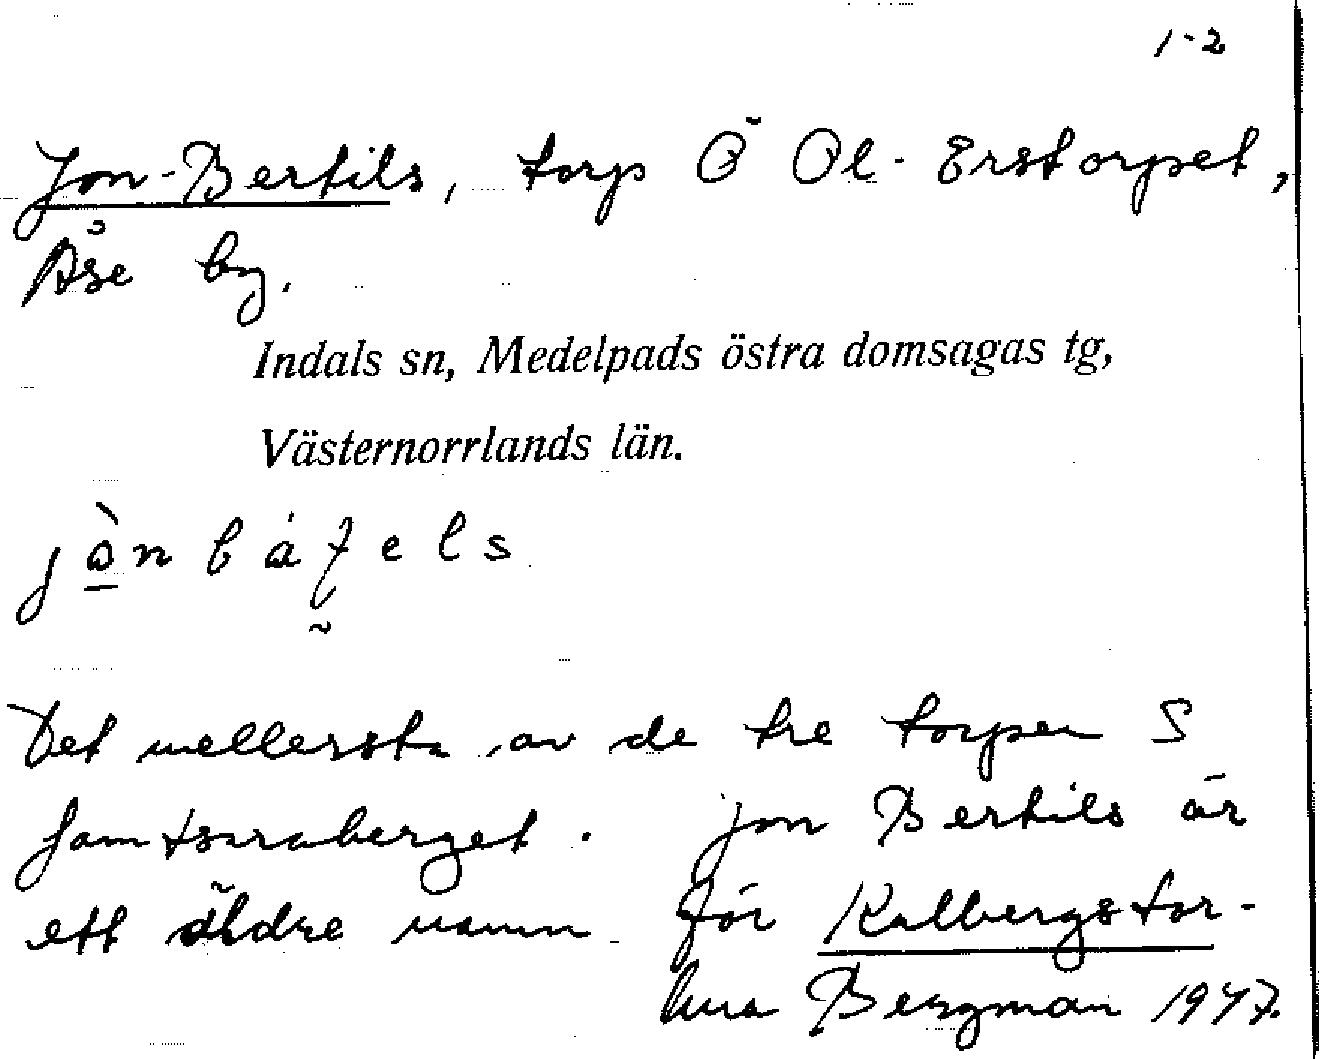 1-2
Jon-Bertils, torp Ö Ol-Erstorpet,
Åse by.
Indals sn, Medelpads östra domsagas tg,
Västernorrlands län.
Det mellersta av de tre torpen S
Jon Bertils är
ett äldre namn för Kalbergstor-
Bergman 1947.